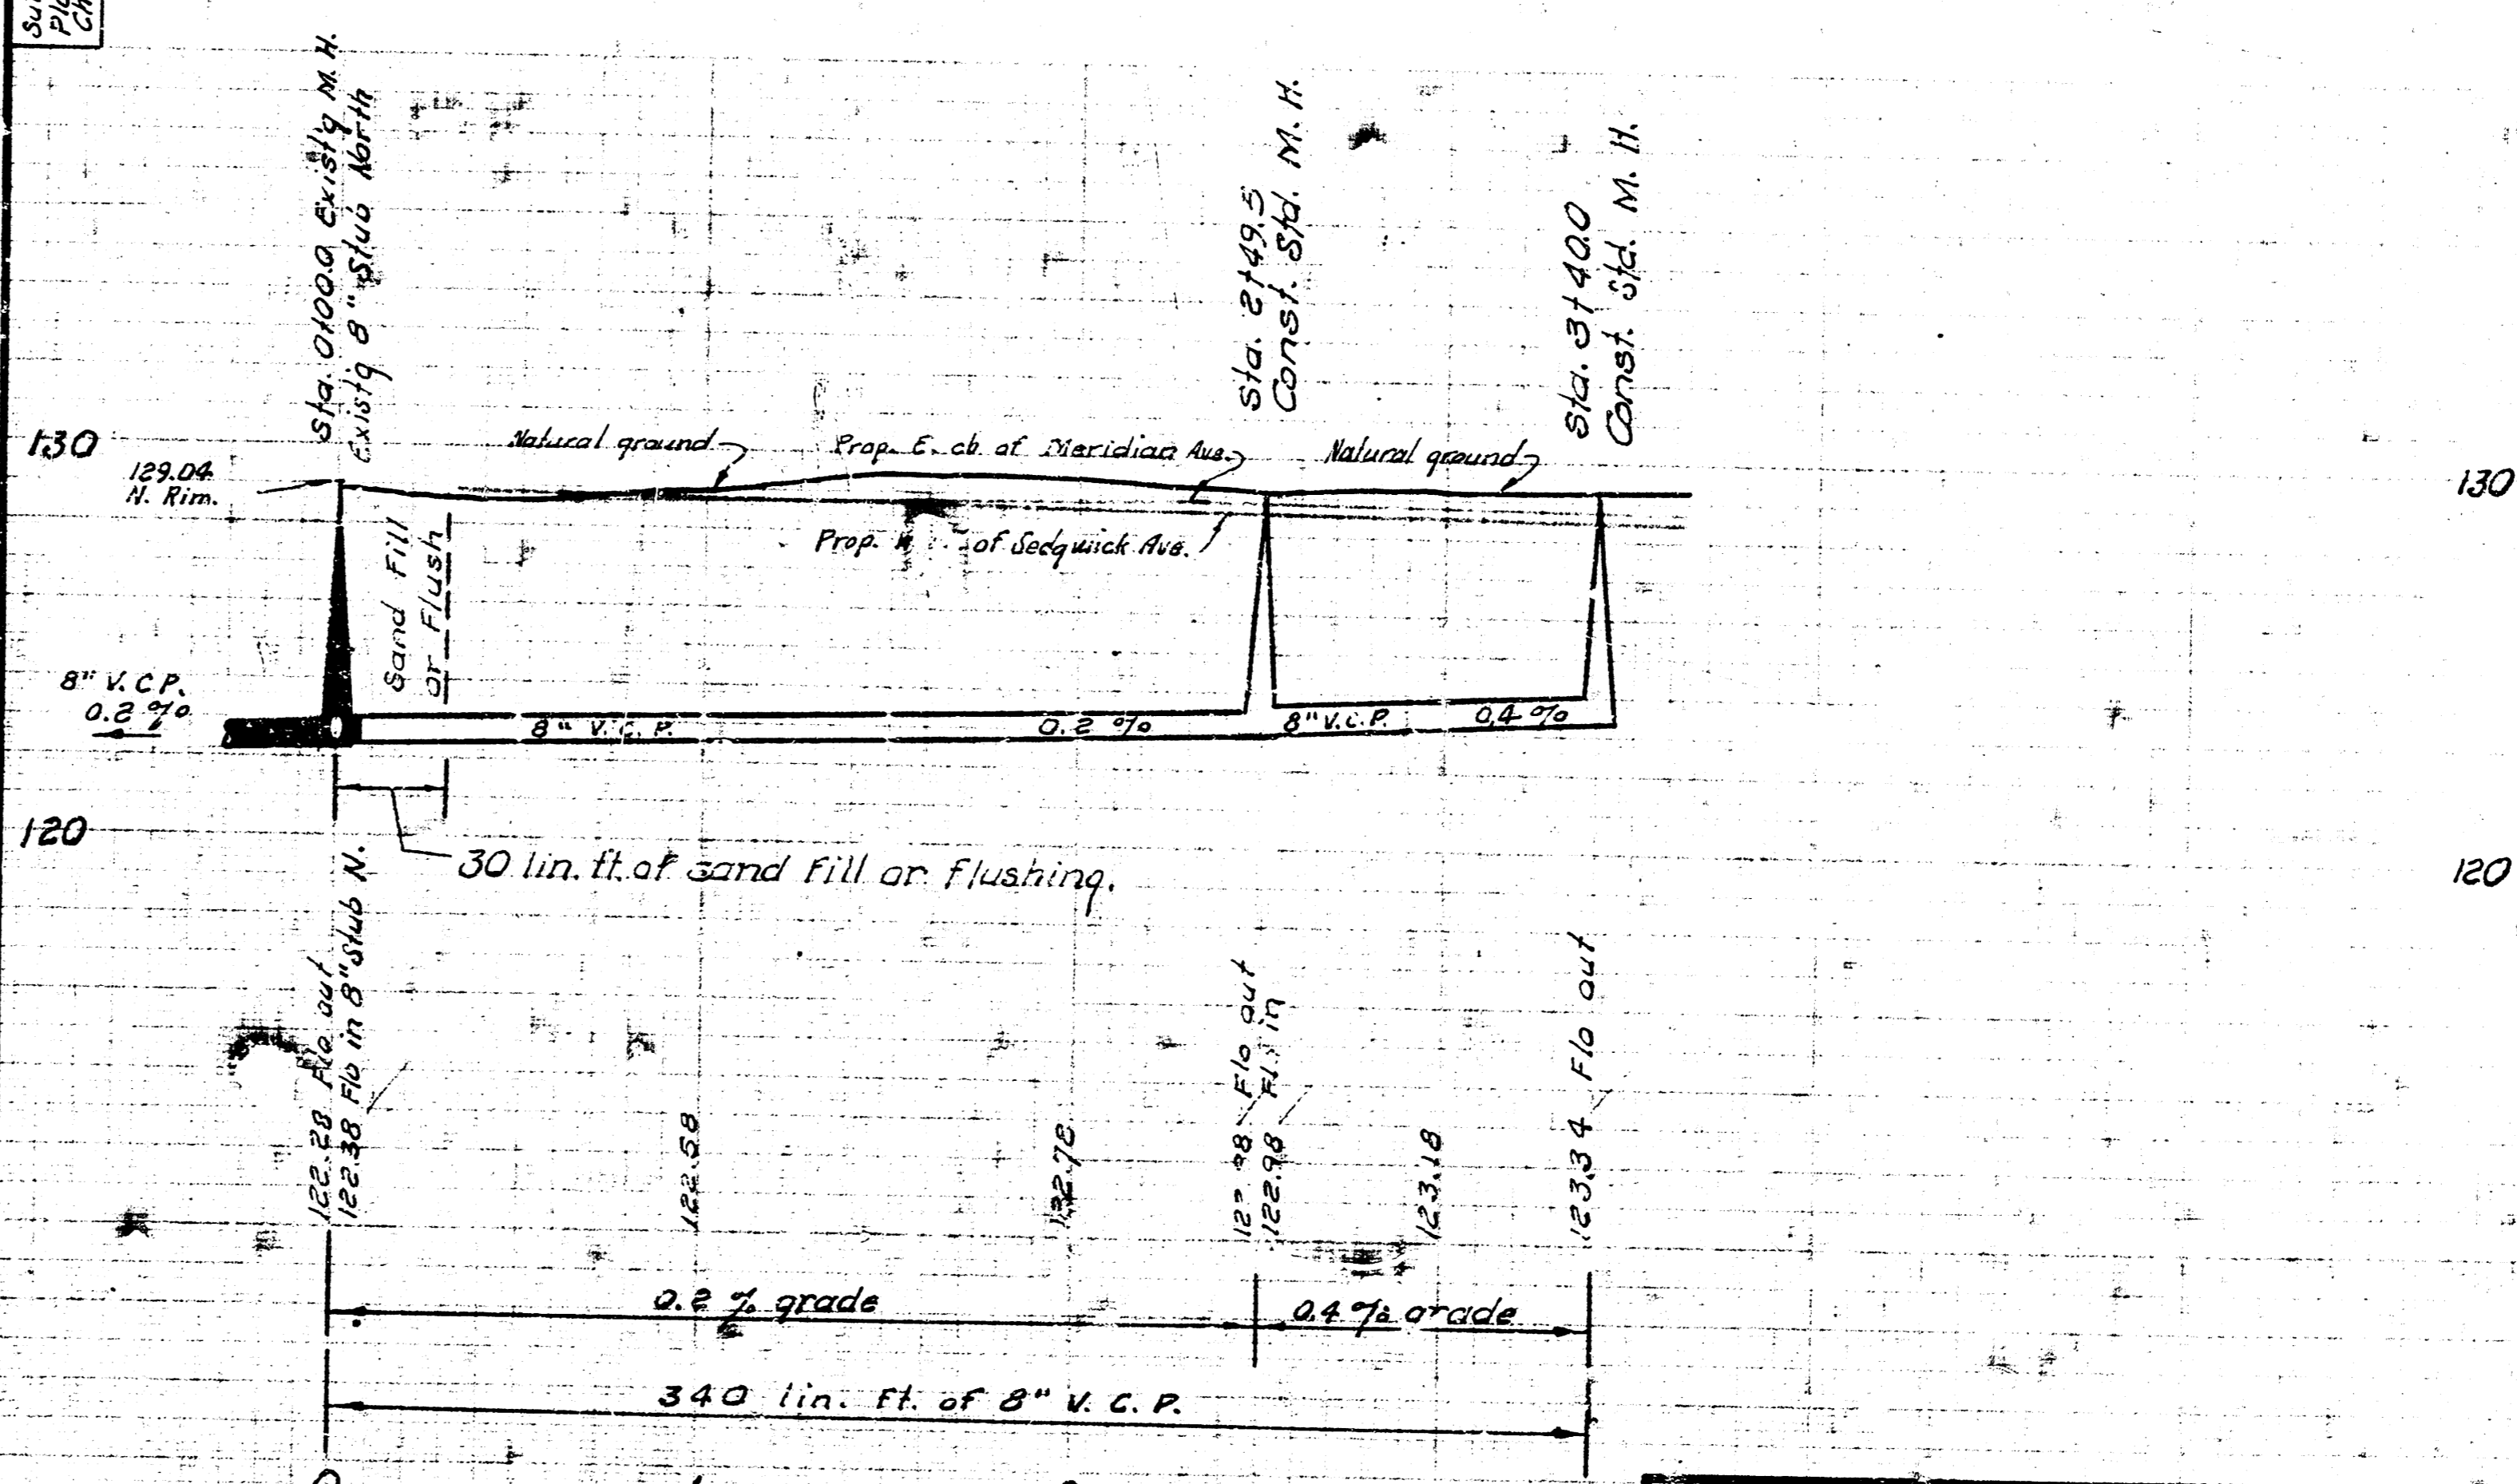 Sta. 0+00.0 Exist'g M.H.
Exist'g 8" Stub North
Sta. 2+49.5
Const. Std. M. H.
Sta. 3+40.0
Const. Std. M. H.
130
129.04
N. Rim.
Natural ground
Prop. E. cb. of Meridian Ave.
Natural ground
130
Prop. of Sedgwick Ave.
Sand Fill
or Flush
8" V.C.P.
0.2 %
8" V.C.P.
0.2 %
8" V.C.P.
0.4 %
120
30 lin. ft. of sand fill or flushing.
120
122.28 Flo out
122.38 Flo in 8" Stub N.
122.58
122.78
98 Flo out
122.98 Fl. in
123.18
123.34 Flo out
0.2 % grade
0.4 % grade
340 lin. ft. of 8" V. C. P.